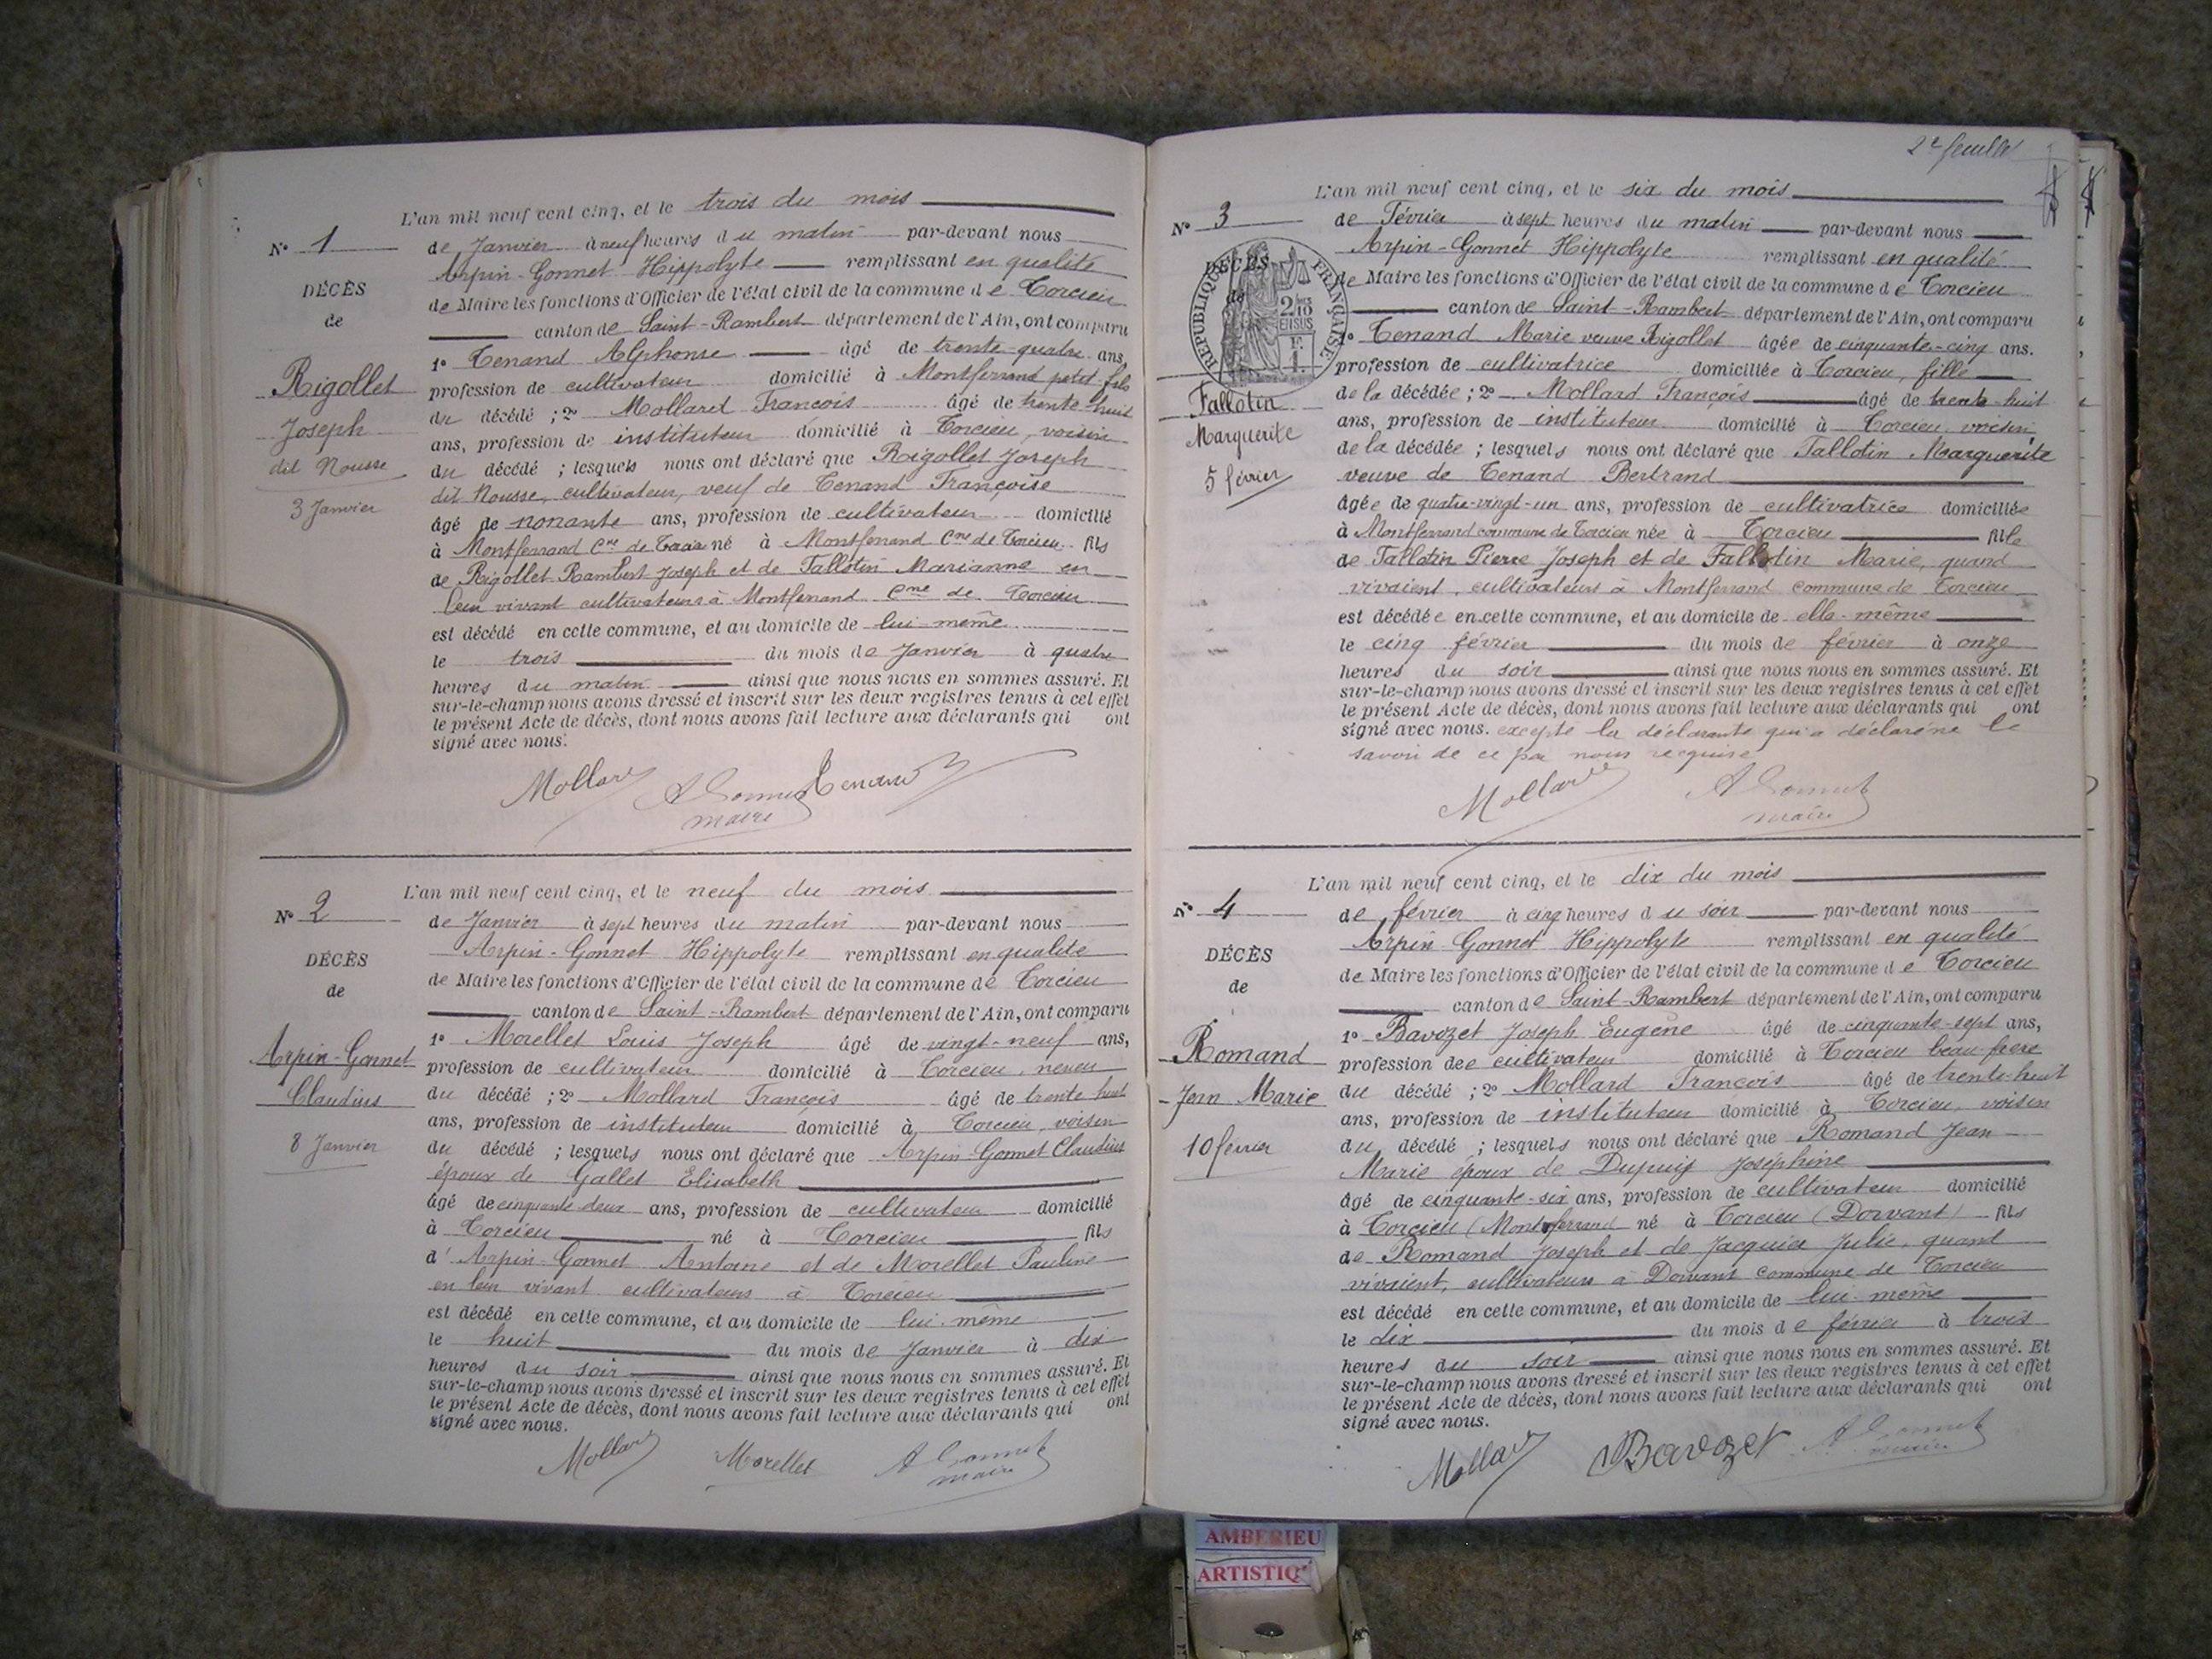 L'an mil neuf cent cinq, et le trois du mois
N° 1
de Janvier à neuf heures du matin par-devant nous
Arpin-Gonnet Hippolyte remplissant en qualité
DÉCÈS
de Maire les fonctions d'Officier de l'état civil de la commune de Torcieu
de
canton de Saint-Rambert département de l'Ain, ont comparu
1° Tenand Alphonse âgé de trente-quatre ans,
Rigollet
profession de cultivateur domicilié à Montferrand petit-fils
du décédé ; 2° Mollard François âgé de trente-huit
Joseph
ans, profession de instituteur domicilié à Torcieu, voisin
dit Nousse
du décédé ; lesquels nous ont déclaré que Rigollet Joseph
dit Nousse, cultivateur, veuf de Tenand Françoise
3 Janvier
âgé de nonante ans, profession de cultivateur domicilié
à Montferrand Cne de né à Montferrand Cne de Torcieu fils
de Rigollet Rambert Joseph et de Fallotin Marianne en
leur vivant cultivateurs à Montferrand Cne de Torcieu
est décédé en cette commune, et au domicile de lui-même
le trois du mois de Janvier à quatre
heures du matin ainsi que nous nous en sommes assuré. Et
sur-le-champ nous avons dressé et inscrit sur les deux registres tenus à cet effet
le présent Acte de décès, dont nous avons fait lecture aux déclarants qui ont
signé avec nous.
Mollard A Gonnet Tenand
maire
L'an mil neuf cent cinq, et le neuf du mois
N° 2
de Janvier à sept heures du matin par-devant nous
Arpin-Gonnet Hippolyte remplissant en qualité
DÉCÈS
de Maire les fonctions d'Officier de l'état civil de la commune de Torcieu
de
canton de Saint-Rambert département de l'Ain, ont comparu
1° Morellet Louis Joseph âgé de vingt-neuf ans,
Arpin-Gonnet
profession de cultivateur domicilié à Torcieu, neveu
Claudius
du décédé ; 2° Mollard François âgé de trente huit
ans, profession de instituteur domicilié à Torcieu, voisin
8 Janvier
du décédé ; lesquels nous ont déclaré que Arpin-Gonnet Claudius
époux de Gallet Elisabeth
âgé de cinquante-deux ans, profession de cultivateur domicilié
à Torcieu né à Torcieu fils
d' Arpin-Gonnet Antoine et de Morellet Pauline
en leur vivant cultivateurs à Torcieu
est décédé en cette commune, et au domicile de lui-même
le huit du mois de Janvier à dix
heures du soir ainsi que nous nous en sommes assuré. Et
sur-le-champ nous avons dressé et inscrit sur les deux registres tenus à cet effet
le présent Acte de décès, dont nous avons fait lecture aux déclarants qui ont
signé avec nous.
Mollard Morellet A Gonnet
maire
2e feuillet
L'an mil neuf cent cinq, et le six du mois
N° 3
de Février à sept heures du matin par-devant nous
Arpin-Gonnet Hippolyte remplissant en qualité
DÉCÈS
de
RÉPUBLIQUE FRANÇAISE
2/10 EN SUS
F. 1.
de Maire les fonctions d'Officier de l'état civil de la commune de Torcieu
canton de Saint-Rambert département de l'Ain, ont comparu
1° Tenand Marie veuve Rigollet âgée de cinquante-cinq ans.
profession de cultivatrice domiciliée à Torcieu, fille
Fallotin
de la décédée ; 2° Mollard François âgé de trente-huit
Marguerite
ans, profession de instituteur domicilié à Torcieu voisin
de la décédée ; lesquels nous ont déclaré que Fallotin Marguerite
5 février
veuve de Tenand Bertrand
âgée de quatre-vingt-un ans, profession de cultivatrice domiciliée
à Montferrand commune de Torcieu née à Torcieu fille
de Fallotin Pierre Joseph et de Fallotin Marie, quand
vivaient, cultivateurs à Montferrand commune de Torcieu
est décédée en cette commune, et au domicile de elle-même
le cinq février du mois de février à onze
heures du soir ainsi que nous nous en sommes assuré. Et
sur-le-champ nous avons dressé et inscrit sur les deux registres tenus à cet effet
le présent Acte de décès, dont nous avons fait lecture aux déclarants qui ont
signé avec nous. excepté la déclarante qui a déclaré ne le
savoir de ce par nous requise
Mollard A Gonnet
maire
L'an mil neuf cent cinq, et le dix du mois
N° 4
de février à cinq heures du soir par-devant nous
Arpin-Gonnet Hippolyte remplissant en qualité
DÉCÈS
de Maire les fonctions d'Officier de l'état civil de la commune de Torcieu
de
canton de Saint-Rambert département de l'Ain, ont comparu
1° Bavozet Joseph Eugène âgé de cinquante-sept ans,
Romand
profession de cultivateur domicilié à Torcieu beau-frère
Jean Marie
du décédé ; 2° Mollard François âgé de trente-huit
ans, profession de instituteur domicilié à Torcieu, voisin
10 février
du décédé ; lesquels nous ont déclaré que Romand Jean
Marie époux de Dupuis Joséphine
âgé de cinquante-six ans, profession de cultivateur domicilié
à Torcieu (Montferrand né à Torcieu (Dorvant) fils
de Romand Joseph et de Jacquier Julie, quand
vivaient, cultivateurs à Dorvant commune de Torcieu
est décédé en cette commune, et au domicile de lui-même
le dix du mois de février à trois
heures du soir ainsi que nous nous en sommes assuré. Et
sur-le-champ nous avons dressé et inscrit sur les deux registres tenus à cet effet
le présent Acte de décès, dont nous avons fait lecture aux déclarants qui ont
signé avec nous.
Mollard Bavozet A Gonnet
maire
AMBERIEU
ARTISTIQ